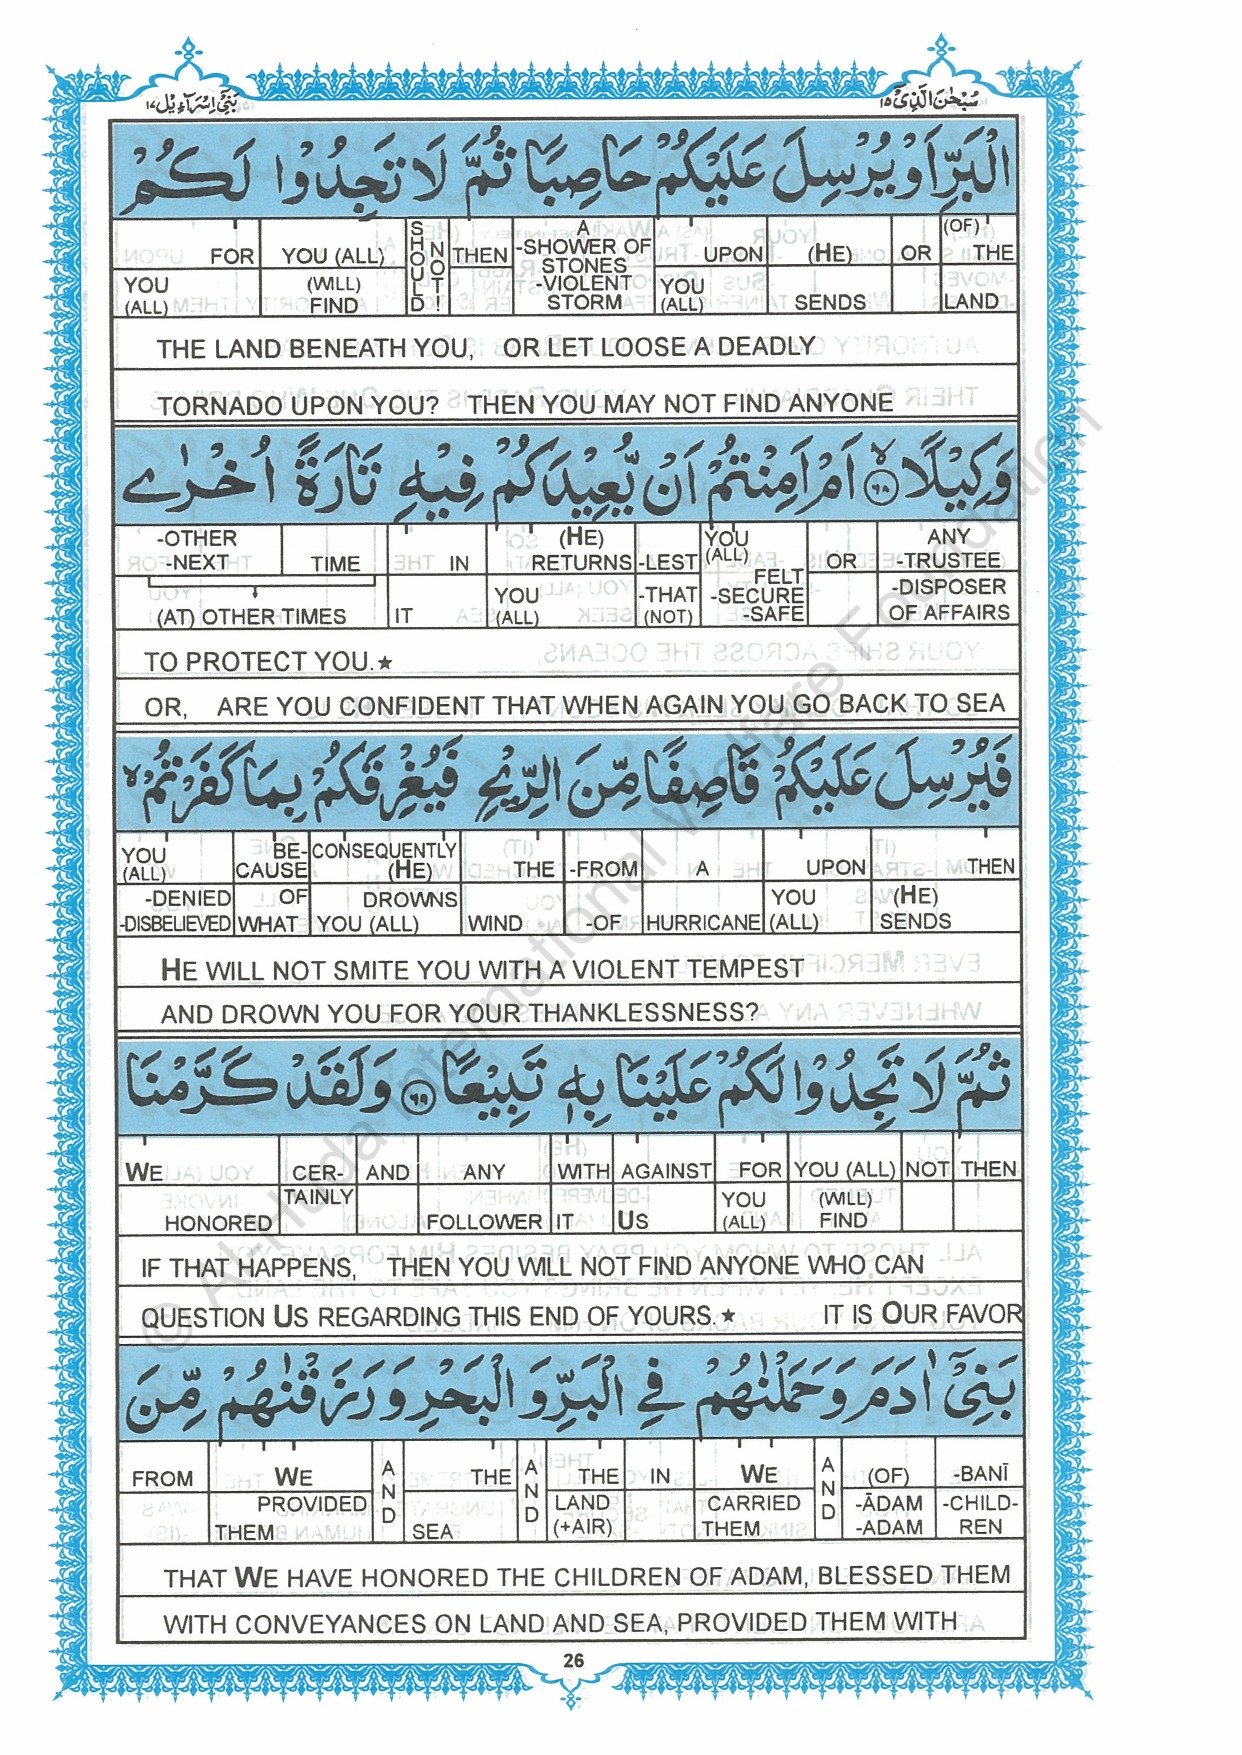 بَنِیْٓ اِسْرَآءِیْل ١٧
سُبْحٰنَ الَّذِیْ ١٥
الْبَرِّ اَوْ یُرْسِلَ عَلَیْكُمْ حَاصِبًا ثُمَّ لَا تَجِدُوْا لَكُمْ
FOR YOU (ALL) SHOULD NOT! THEN A -SHOWER OF UPON (HE) OR (OF) THE
YOU (ALL) (WILL) FIND STONES -VIOLENT STORM YOU (ALL) SENDS LAND
THE LAND BENEATH YOU, OR LET LOOSE A DEADLY
TORNADO UPON YOU? THEN YOU MAY NOT FIND ANYONE
وَكِیْلًا ۙ﴿٦٨﴾ اَمْ اَمِنْتُمْ اَنْ یُّعِیْدَكُمْ فِیْهِ تَارَةً اُخْرٰی
-OTHER -NEXT TIME IN (HE) RETURNS -LEST YOU (ALL) OR ANY -TRUSTEE
(AT) OTHER TIMES IT YOU (ALL) -THAT (NOT) FELT -SECURE -SAFE -DISPOSER OF AFFAIRS
TO PROTECT YOU.★
OR, ARE YOU CONFIDENT THAT WHEN AGAIN YOU GO BACK TO SEA
فَیُرْسِلَ عَلَیْكُمْ قَاصِفًا مِّنَ الرِّیْحِ فَیُغْرِقَكُمْ بِمَا كَفَرْتُمْ ۙ
YOU (ALL) BE-CAUSE CONSEQUENTLY (HE) THE -FROM A UPON THEN
-DENIED -DISBELIEVED OF WHAT DROWNS YOU (ALL) WIND -OF HURRICANE YOU (ALL) (HE) SENDS
HE WILL NOT SMITE YOU WITH A VIOLENT TEMPEST
AND DROWN YOU FOR YOUR THANKLESSNESS?
ثُمَّ لَا تَجِدُوْا لَكُمْ عَلَیْنَا بِهٖ تَبِیْعًا ﴿٦٩﴾ وَلَقَدْ كَرَّمْنَا
WE CER- AND ANY WITH AGAINST FOR YOU (ALL) NOT THEN
HONORED TAINLY FOLLOWER IT US YOU (ALL) (WILL) FIND
IF THAT HAPPENS, THEN YOU WILL NOT FIND ANYONE WHO CAN
QUESTION US REGARDING THIS END OF YOURS.★ IT IS OUR FAVOR
بَنِیْٓ اٰدَمَ وَحَمَلْنٰهُمْ فِی الْبَرِّ وَ الْبَحْرِ وَرَزَقْنٰهُمْ مِّنَ
FROM WE AND THE AND THE IN WE AND (OF) -BANĪ
PROVIDED THEM SEA LAND (+AIR) CARRIED THEM -ĀDAM -ADAM -CHILD-REN
THAT WE HAVE HONORED THE CHILDREN OF ADAM, BLESSED THEM
WITH CONVEYANCES ON LAND AND SEA, PROVIDED THEM WITH
26
© Al-Huda International Welfare Foundation